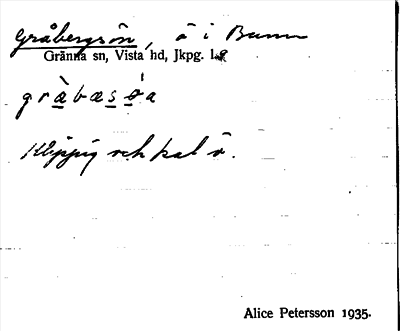 Gråbergsön, ö i Bunn
Gränna sn, Vista hd, Jkpg. l.
gràbæsǿa
Klippig och kal ö.
Alice Petersson 1935.